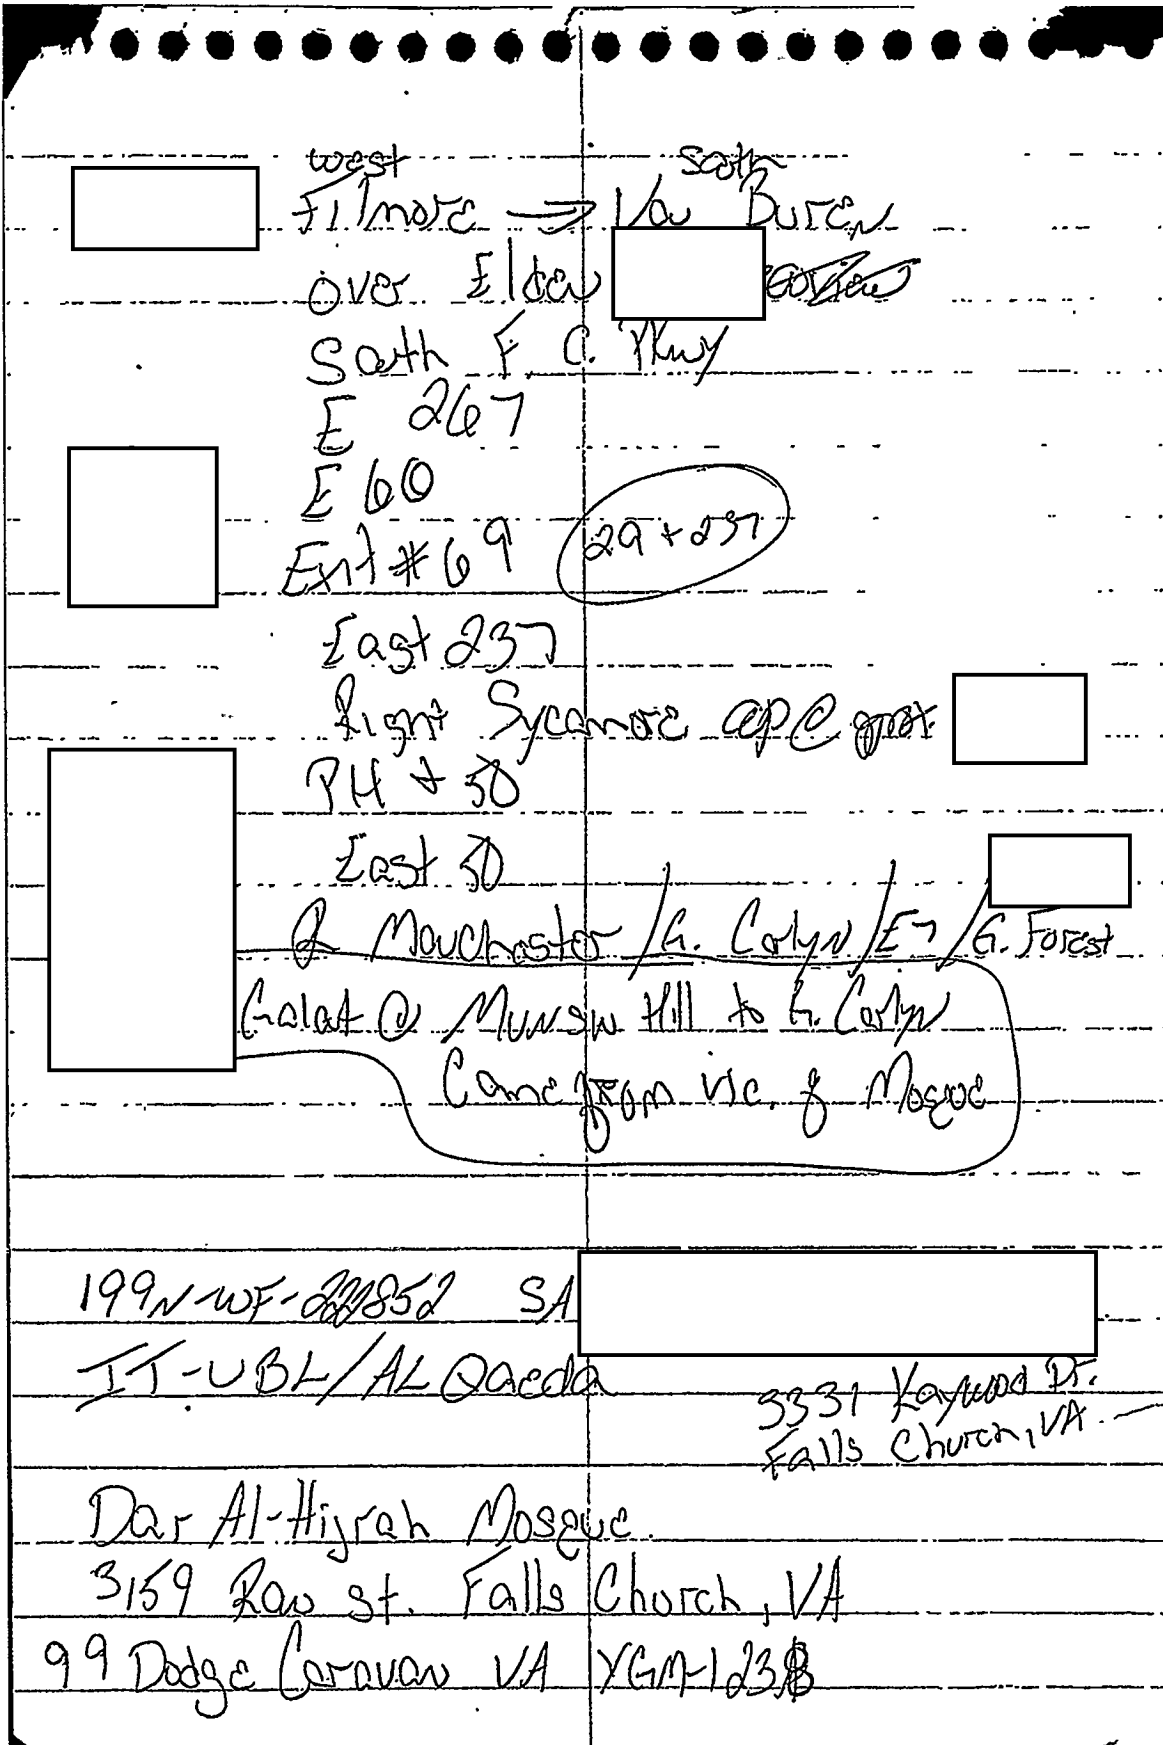 west south
Filmore → Van Buren
over Elden
South F. C. Pkwy
E 267
E 60
Exit # 69 29 + 237
East 237
Right Sycamore
PH + 50
East 50
R Manchester / G. Carlyn / E7 / G. Forest
Galat @ Munson Hill to G. Carlyn
Came from vic. of Mosque
199N-WF-222852 SA
IT-UBL/AL Qaeda
3331 Kaywood Dr.
Falls Church, VA
Dar Al-Hijrah Mosque.
3159 Row St. Falls Church, VA
99 Dodge Caravan VA YGM-1238